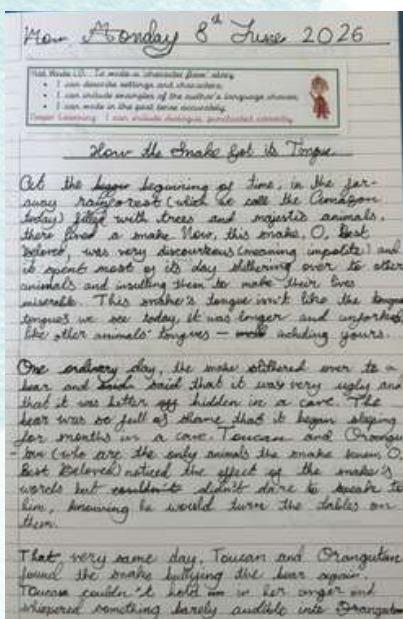 Mon Monday 8th June 2026
Hot Write LO: To write a character flaw story
• I can describe settings and characters.
• I can include examples of the author's language choices.
• I can write in the past tense accurately.
Deeper Learning: I can include dialogue, punctuated correctly.
How the Snake Got its Tongue
At the beginning of time, in the far-
away rainforest (which we call the Amazon
today) filled with trees and majestic animals,
there lived a snake. Now, this snake, O, Best
Beloved, was very discourteous (meaning impolite) and
it spent most of its day slithering over to other
animals and insulting them to make their lives
miserable. This snake's tongue isn't like the
tongues we see today, it was longer and unforked
like other animals' tongues – including yours.
One ordinary day, the snake slithered over to a
bear and said that it was very ugly and
that it was better off hidden in a cave. The
bear was so full of shame that it began sleeping
for months in a cave. Toucan and Orangu
-tan (who are the only animals the snake knew, O,
Best Beloved) noticed the effect of the snake's
words but couldn't didn't dare to speak to
him, knowing he would turn the tables on
them.
That very same day, Toucan and Orangutan
found the snake bullying the bear again.
Toucan couldn't hold in her anger and
whispered something barely audible into Orangutan